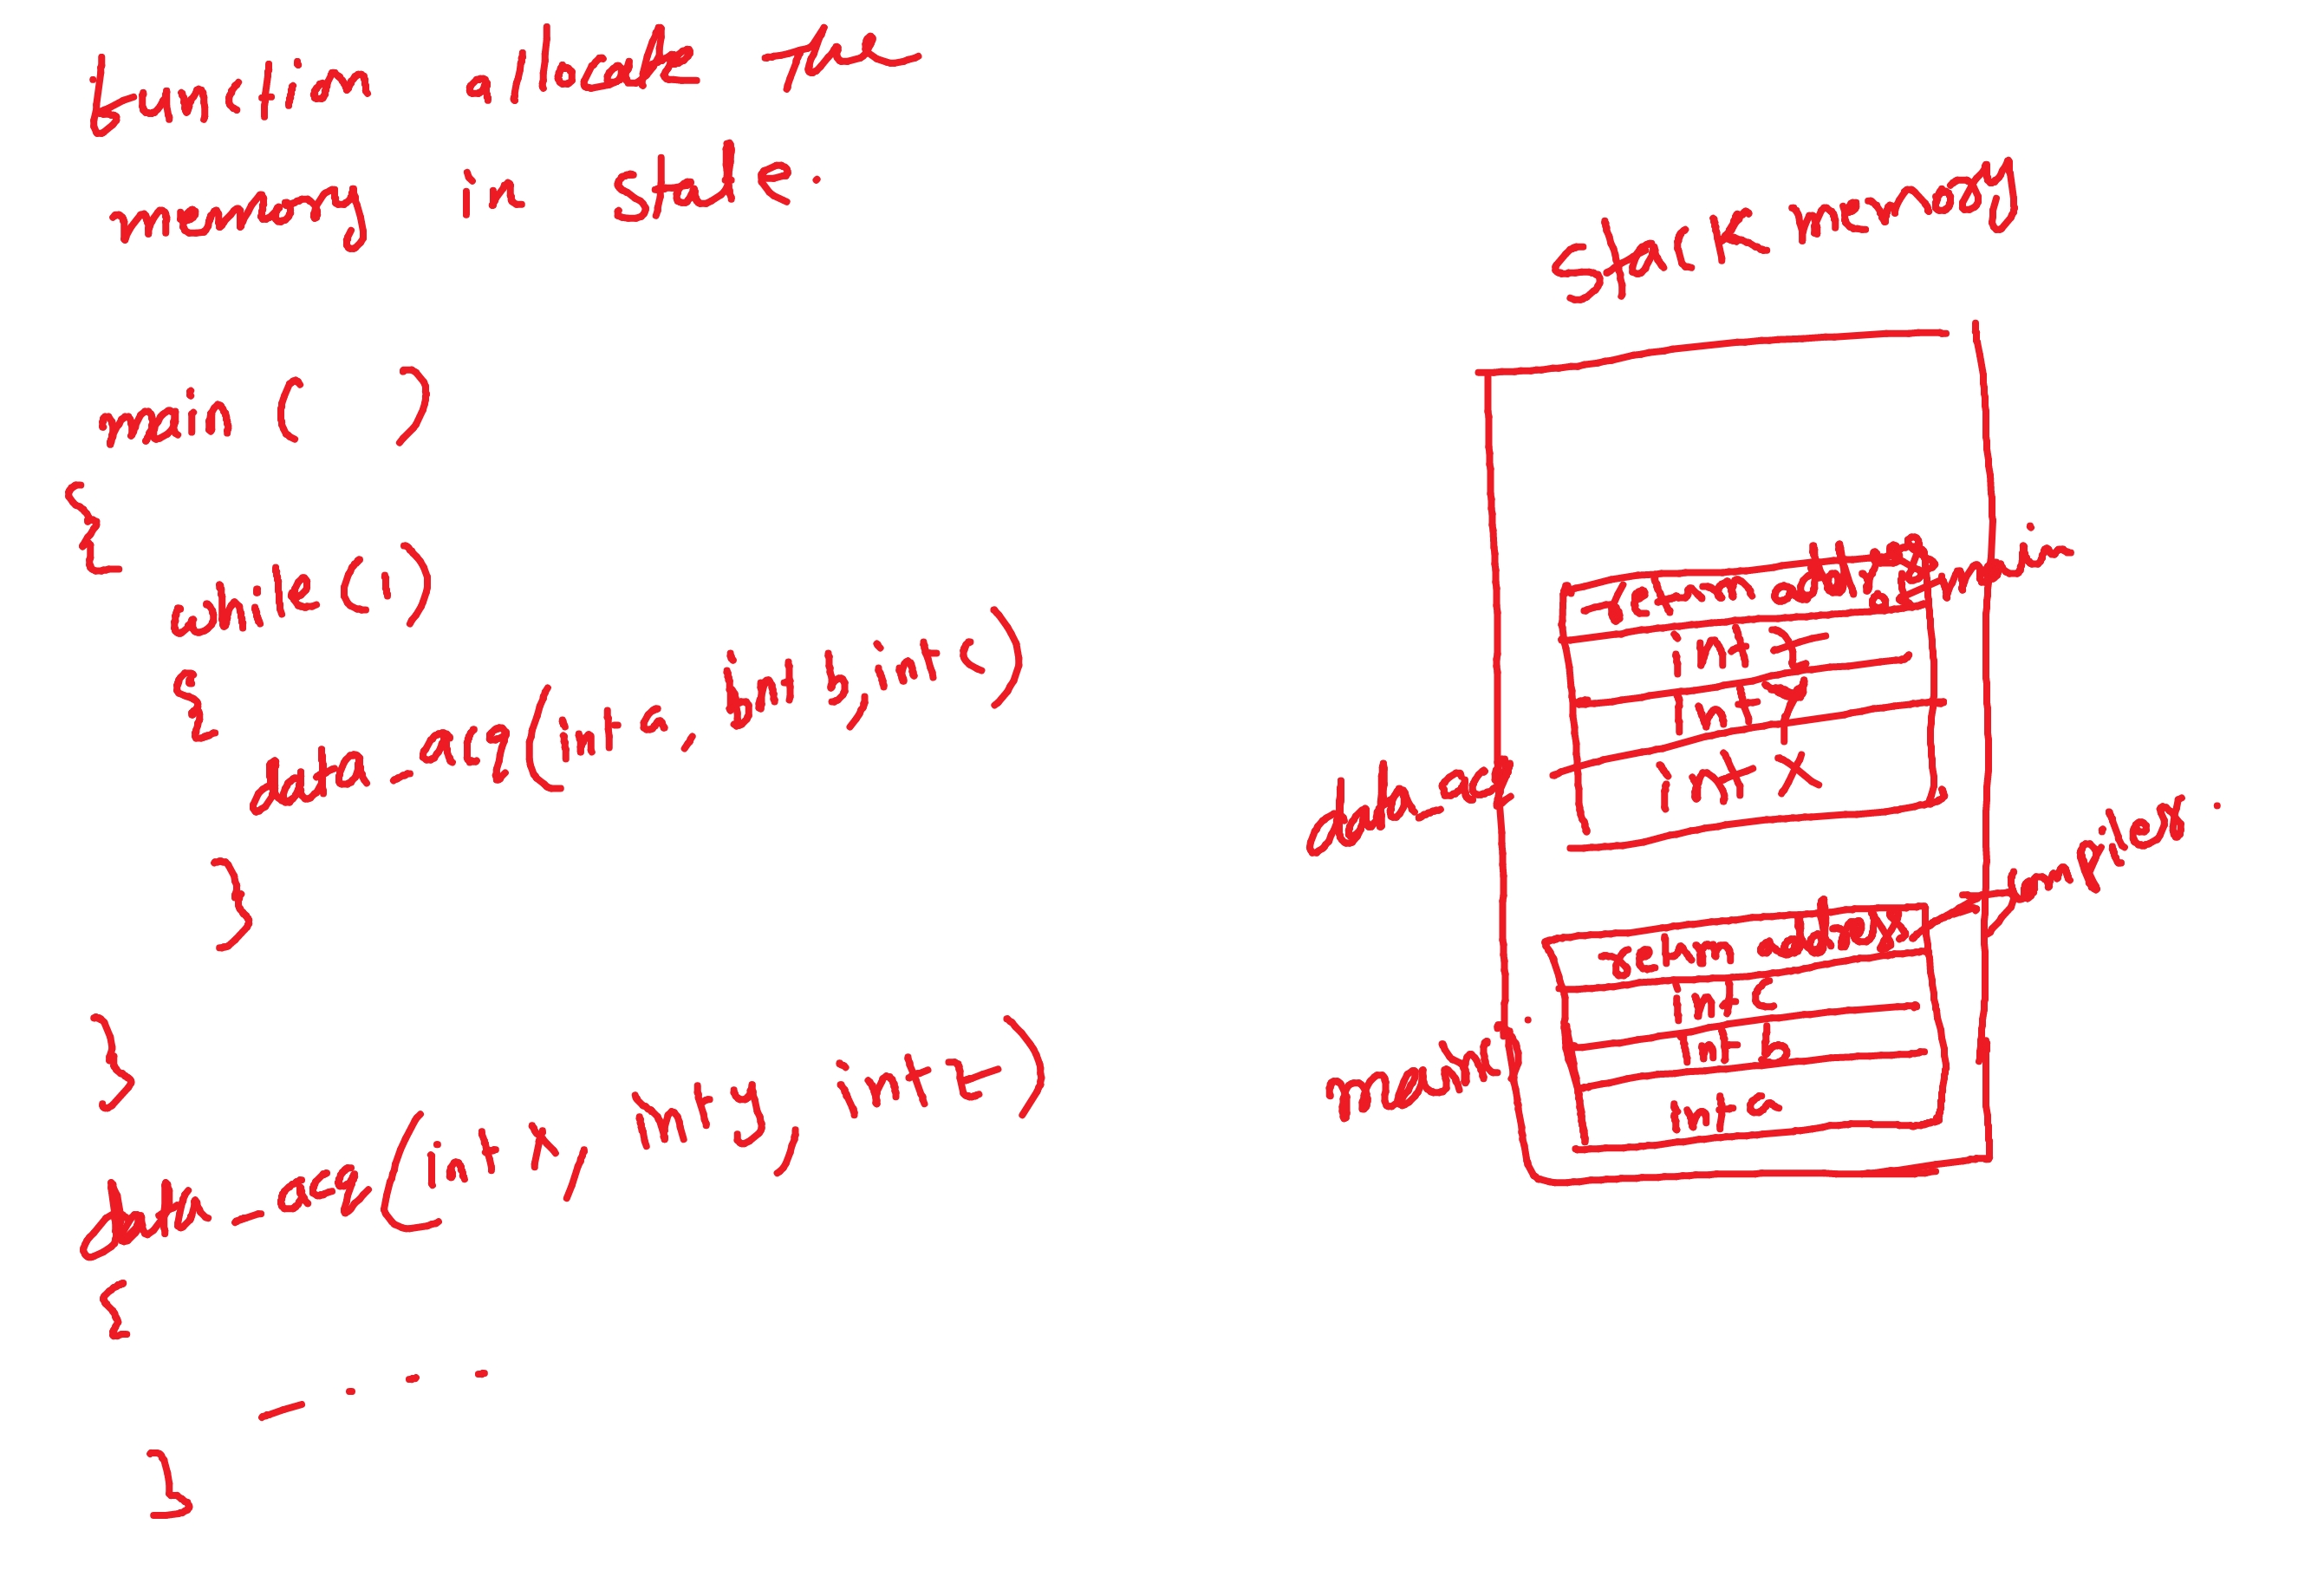 function allocate the
memory in stack.
main ( )
{
while (1)
{
data_acq (int a, int b, int c)
}
}
data_acq (int x, int y, int z)
{
_ . . .
}
Stack memory
return address
to main
int z
int y
int x
data acq
return address
compiler.
int c
int b
int a
main.